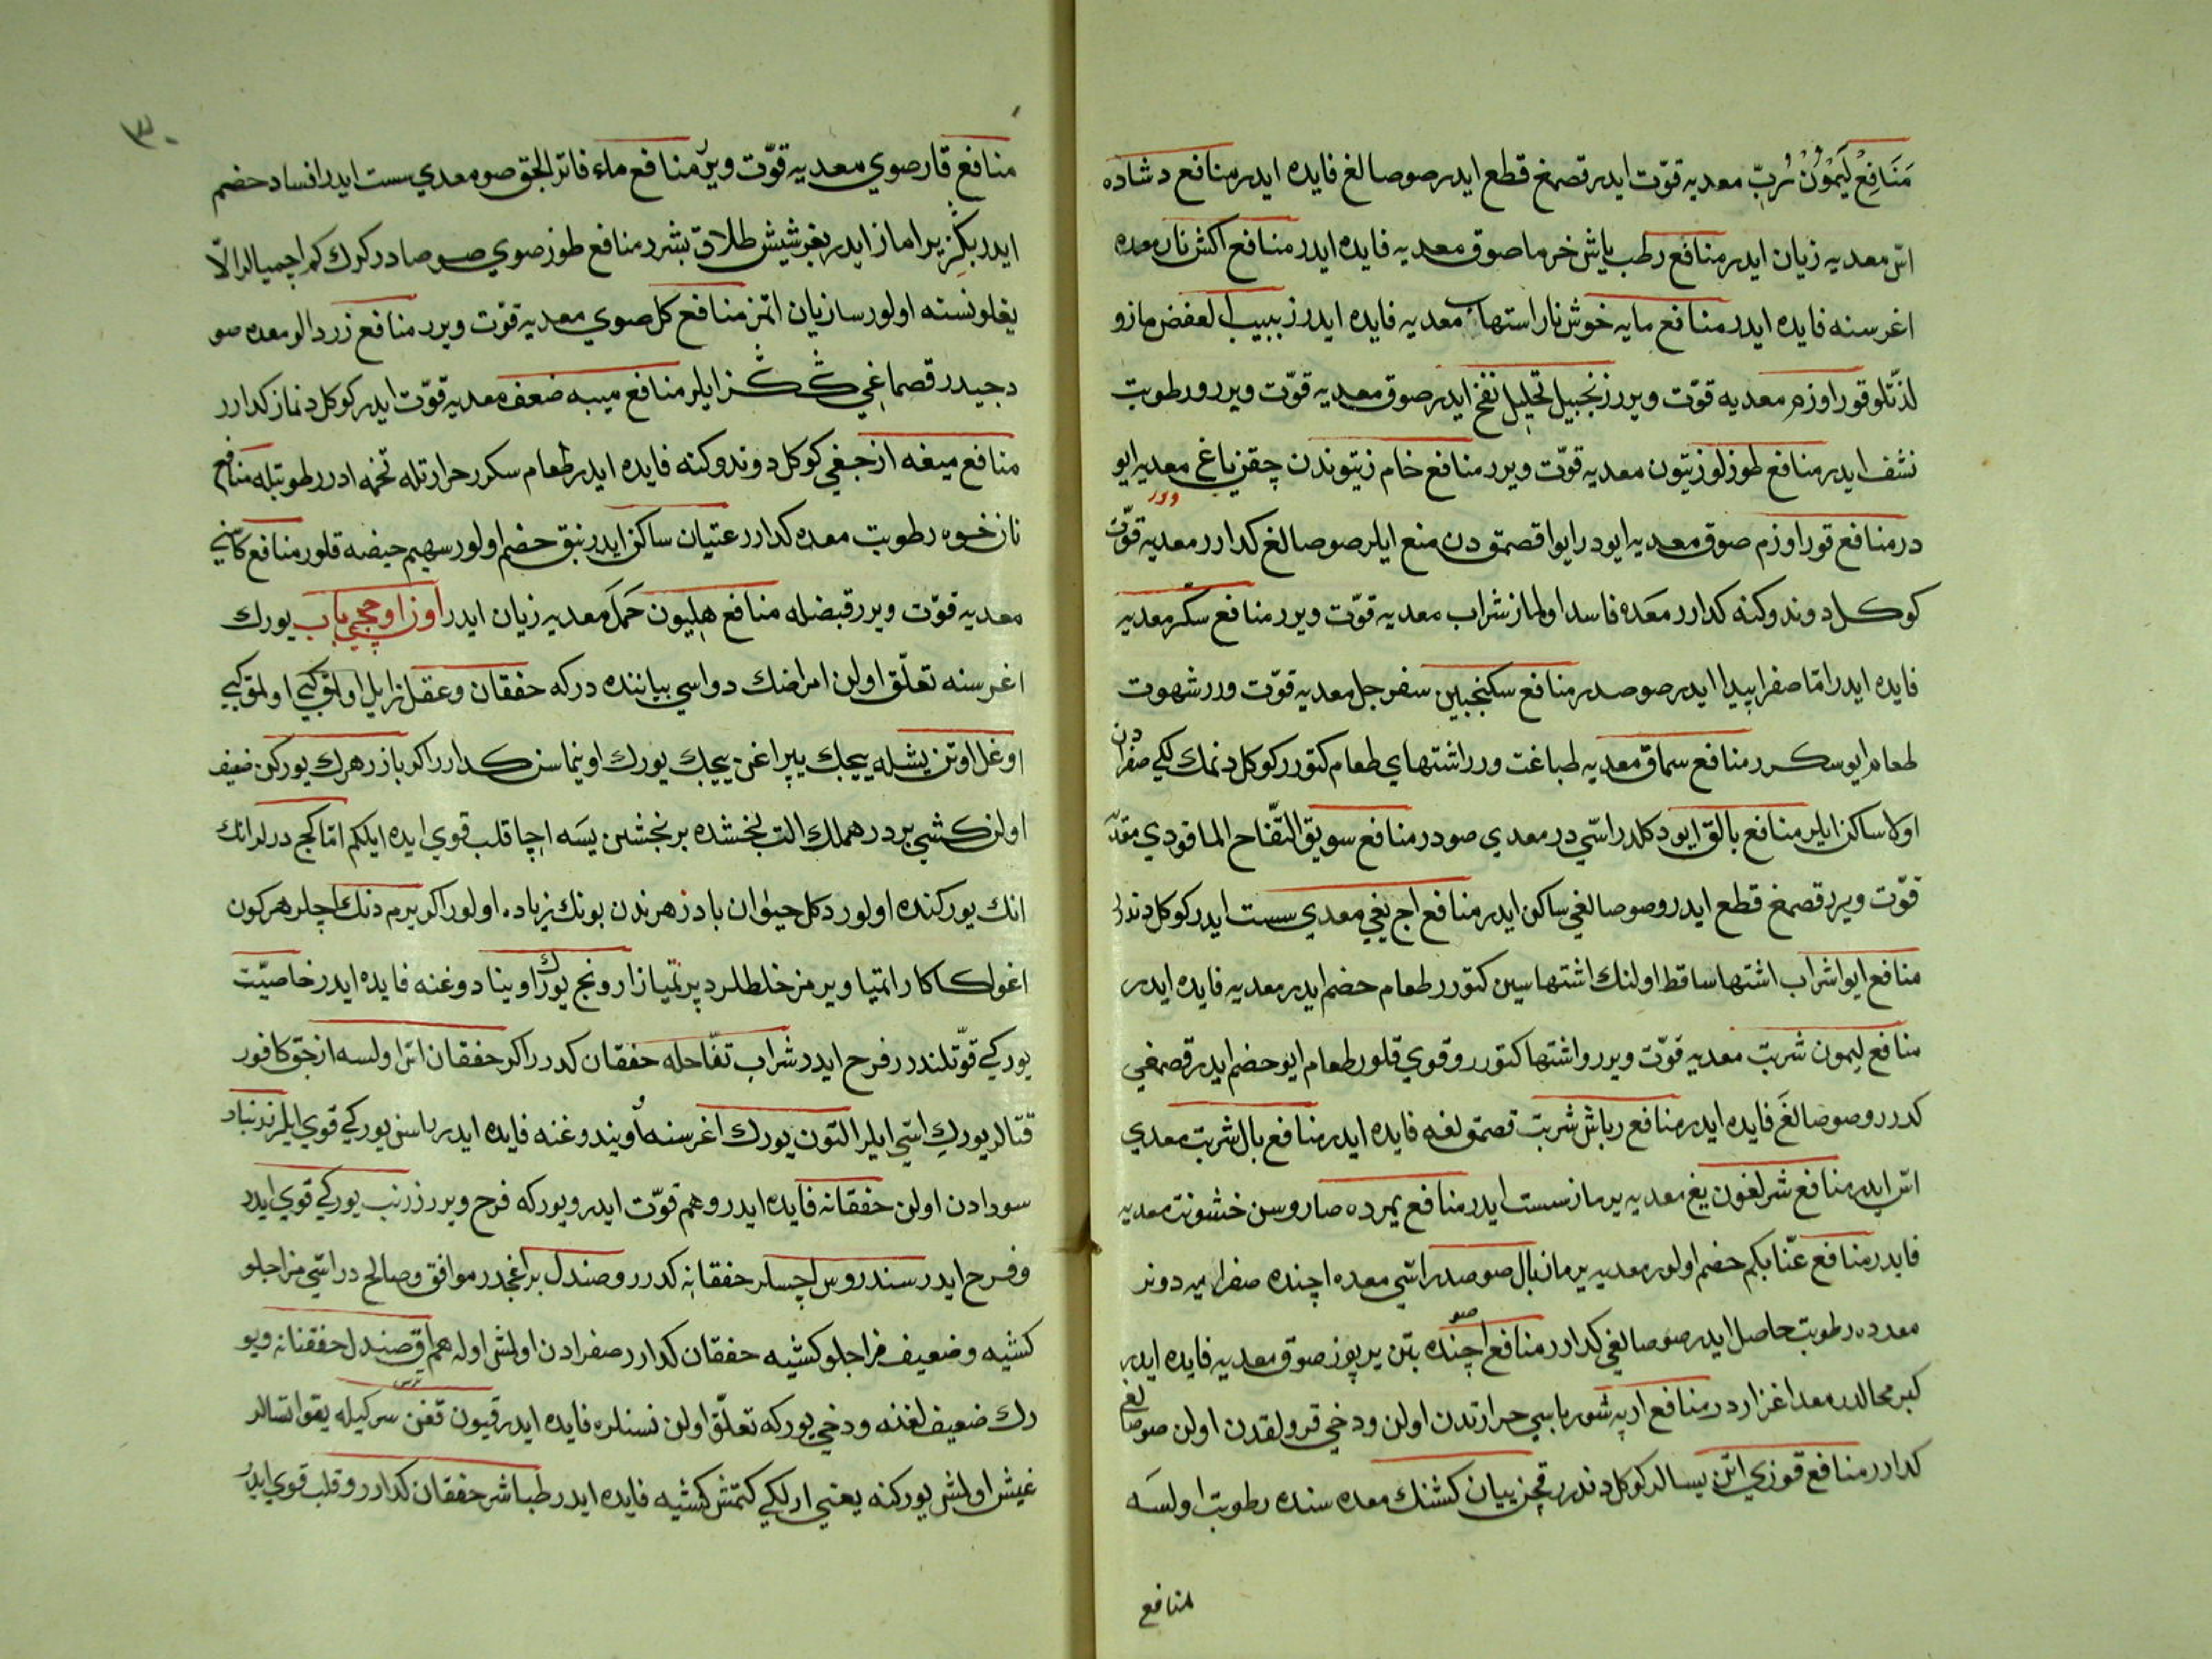 مَنَافِعْ لَيَمْوُنْ رُبّ معديه قوّت ايدر قصمغ قطع ايدر صوصالغ فايده ايدر منافع دشاده
اتى معديه زيان ايدر منافع رطب ياش خرما صوق معديه فايده ايدر منافع اكش نار معده
اغرسنه فايده ايدر منافع مايه خوش نار استهاب معديه فايده ايدر زبيب العفص مازو
لذّتلو قور اوزم معديه قوّت ويرر زنجبيل تحليل نفخ ايدر صوق معديه قوّت ويرر ورطوبت
نشف ايدر منافع طوزلو زيتون معديه قوّت ويرر منافع خام زيتوندن چقن ياغ معديه ايو
درر
در منافع قور اوزم صوق معديه ايودر ايوا قصمق دن منع ايلر صوصالغ كدارر معديه قوّت
كوكل دوندوكنه كدارر معَده فاسد اولماز شراب معديه قوّت ويرر منافع سكّر معديه
فايده ايدر امّا صفرا پيدا ايدر صوصدر منافع سكنجبين سفرجل معديه قوّت ورر شهوت
طعام ايو سكرر منافع سماق معديه طباغت ورر اشتهاي طعام كتورر كوكل دنمك لكى صفرادن
اوكا ساكن ايلر منافع بالق ايو دكلدر اسّي در معدي صودر منافع سويق التّفاح الماقودي معَديه
قوّت ويرر قصمغ قطع ايدر وصوصالغي ساكن ايدر منافع اچ يغي معدي سست ايدر كوكل دندر
منافع ايوا شراب اشتها ساقط اولنك اشتهاسين كتورر طعام حضم ايدر معديه فايده ايدر
منافع ليمون شربت معديه قوّت ويرر واشتها كتورر وقوي قلور طعام ايو حضم ايدر قصمغي
كدرر وصوصالغَ فايده ايدر منافع رباش شربت قصمق لغه فايده ايدر منافع بال شربت معدي
اسّي ايدر منافع شرلغون يغ معديه يرماز سست ايدر منافع يمرده صاروسن خشونت معديه
فايدر منافع عنّابكم حضم اولور معديه يرمان بال صوصدر اسّي معده اچنده صفرايه دونر
معدده رطوبت حاصل ايدر صوصالغي كدارر منافع صو اچنده بتن يرپوز صوق معديه فايده ايدر
كبر مخالدره معد اغزاردر منافع ارپه شورباسي حرارتدن اولن ودخي قرولقدن اولن صوصالغي
كدارر منافع قوزي اتن يسالر كوكل دندرر قچن بيان كشنك معده سنده رطوبت اولسَه
منافع
٣٠
منافع قارصوي معديه قوّت ويرر منافع ماء فاتر الجق صو معدي سست ايدر افساد حضم
ايدر بكّز يراماز ايدر بغر شيش طلاق بشرر منافع طوز صوي صوصادر كرك كم اچميالر الّا
يغلو نسته اولورسا زيان اتمز منافع كل صوي معديه قوّت ويرر منافع زردالو معده صو
دجيدر قصماغي كَشْكَز ايلر منافع ميبه ضعف معديه قوّت ايدر كوكل دنماز كدارر
منافع ميعه ازجغي كوكل دوندوكنه فايده ايدر طعام سكرر حرارتله تخمه ادر رطوبتله منافع
نانخوه رطوبت معده كدارر عتيان ساكن ايدر نبق حضم اولور سهيم حيضه قلور منافع كاسنى
معديه قوّت ويرر قبضله منافع هليون حَمَل معديه زيان ايدر اوزاوججي باب يورك
اغرسنه تعلّق اولن امراضك دواسي بياننده دركه حفقان وعقل زايل اولمق كبى اولمق كبى
اوغل اوتن يشله ييجك يپراغن ييجك يورك اوينماسن كدارر اكر بازرهرك يوركن ضعيف
اولن كشي بر درهملك الت بخشده بر بخشن يسَه اچا قلب قوي ايده ايلكم امّا كچ درلر انك
انك يوركنده اولور دكل حيوان بادزهرندن بونك زياده اولور اكر يرم دنك اچلر هر كون
اغولكاكاراتميا ويرمز خلطلر ديرتميا زارونج يورك اويناد وغنه فايده ايدر خاصيّت
يوركي قوّتلندرر فرح ايدر شراب تفّاحله حفقان كدرر اكر حفقان اتّ اولسه ازجق كافور
قتالر يورك اسّي ايلر التون يورك اغرسنه اُويندوغنه فايده ايدر باسنى يوركي قوي ايلر زرنباد
سودادن اولن حفقانه فايده ايدر وهم قوّت ايدر ويوركه فرح ويرر زرنب يوركي قوي ايدر
وفرح ايدر سندروس اچسلر حفقانه كدرر وصندل براغجدر موافق وصالح در اسّي مزاجلو
كشيه وضعيف مزاجلو كشيه حفقان كدارر صفرادن اولمش اوله هم اق صندل حفقنانه ويو
رك ضعيف لغنه ودخي يوركه تعلّق اولن نسنلره فايده ايدر قيون قغن ترس سركيله يقو اتسالر
غيش اولمش يوركنه يعني ارلكي كتمش كشيه فايده ايدر طباشر حفقان كدارر وقلب قوي ايدر